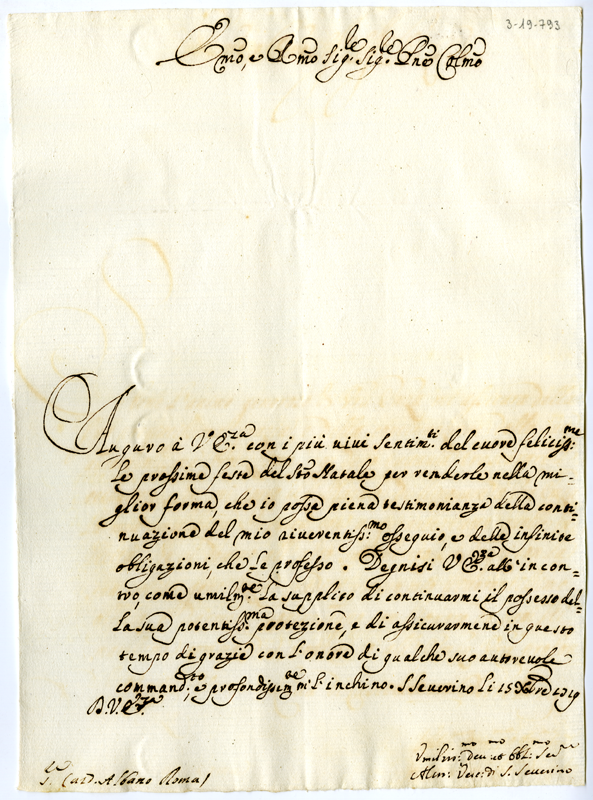 3-19-793
Emo, e Rmo Sig.re Sig.re Pne Colmo
Auguro à V.ra E.za con i più vivi sentim.ti del cuore feliciss.me
le prossime feste del Sto Natale per renderle nella mi=
glior forma, che io possa piena testimonianza della conti=
nuazione del mio riverentiss.mo ossequio, e delle infinite
obligazioni, che le professo. Degnisi V.E.za all'incon=
tro, come umilm.te la supplico di continuarmi il possesso del=
la sua potentiss.ma protezione, e di assicurarmene in questo
tempo di grazie con l'onore di qualche suo autorevole
command.to e profondissim.te m'l'inchino. S. Severino li 15 Xbre 1719
D.V.E.za
S.r Card. Albano Roma)
Umiliss.mo dev.mo ed obbl.mo Ser.re
Aless. Vesc. di S. Severino